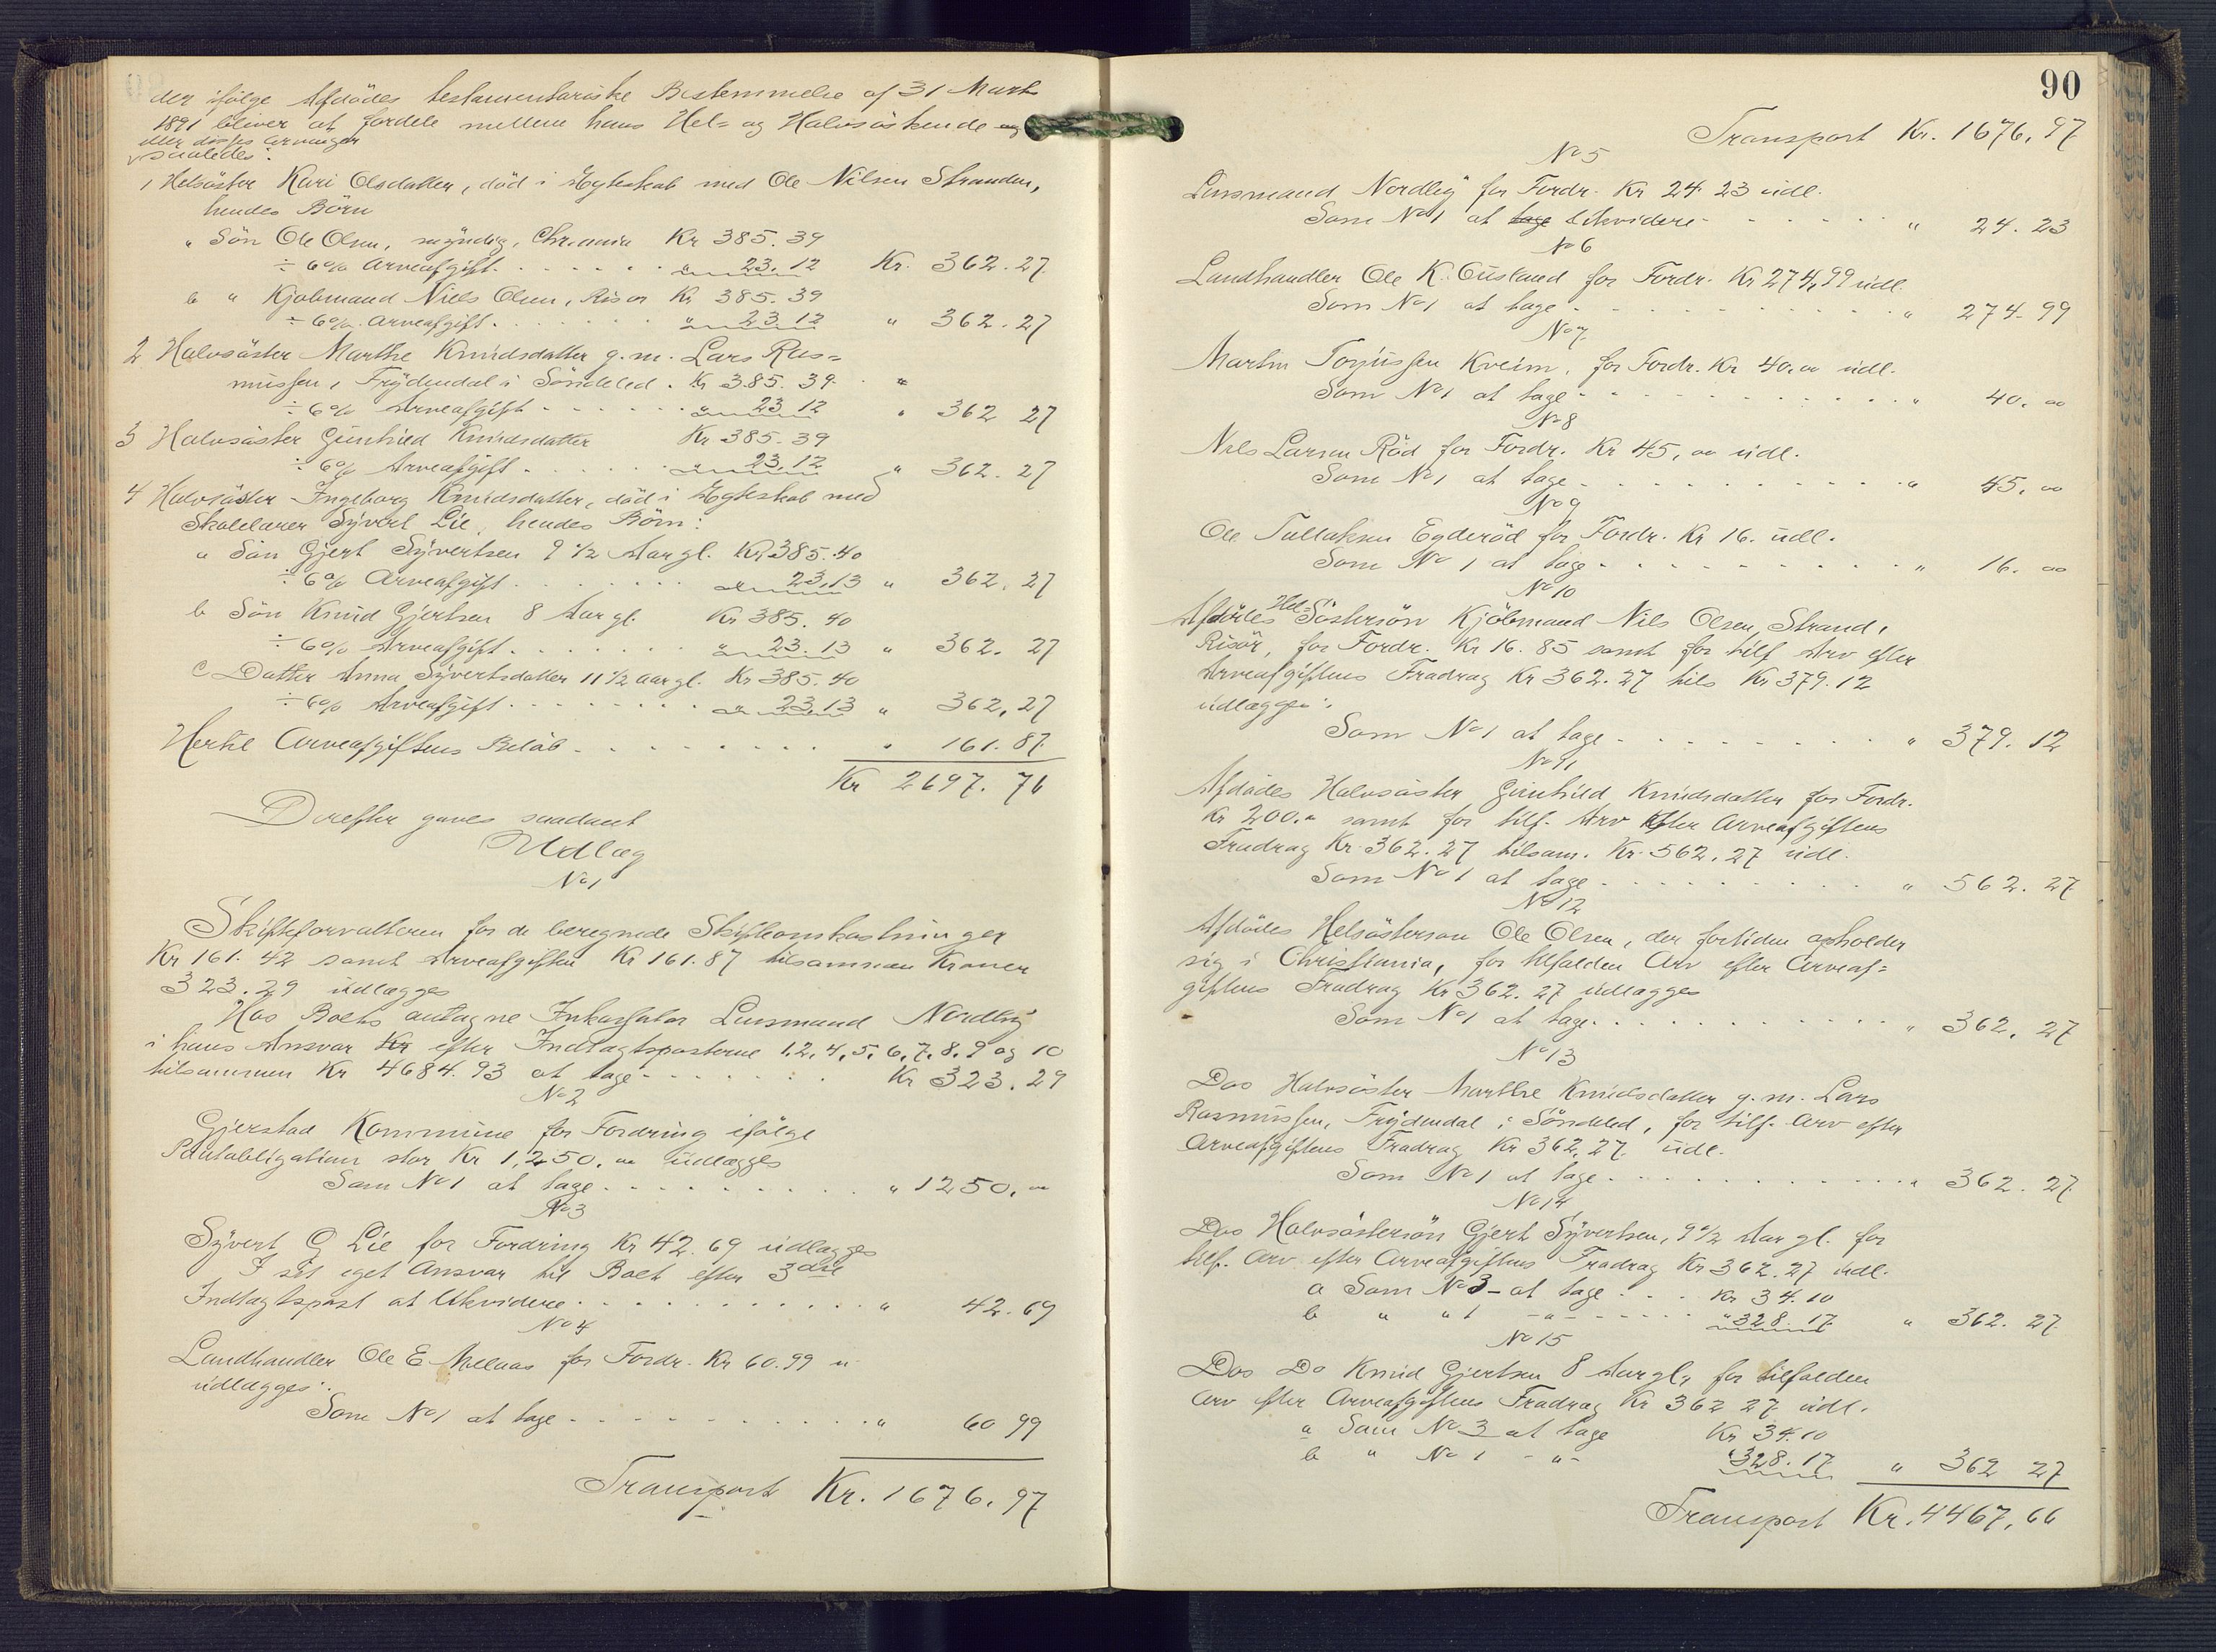 der ifølge Afdødes testamentariske Bestemmelse af 31 Marts
1891 bliver at fordele mellem hans Hel- og Halvsøskende og
eller disses Arvinger
saaledes:
1 Helsøster Kari Olsdatter, død i Egteskab med Ole Nilsen Stranden,
hendes Börn
" Sön Ole Olsen, myndig, Chr.ania Kr 385.39
÷ 6% Arveafgift. . . . . . " 23.12 Kr. 362.27
b " Kjöbmand Niels Olsen, Risør Kr 385.39
÷ 6% Arveafgift. . . . . . " 23.12 " 362.27
2 Halvsøster Marthe Knudsdatter g.m. Lars Ras-
mussen, Frydendal i Söndeled. Kr 385.39. "
÷ 6% Arveafgift - - - - - " 23 12 " 362 27
3 Halvsøster Gunhild Knudsdatter Kr 385.39
÷ 6% Arveafgift . . . . . " 23.12 " 362.27
4 Halvsøster Ingeborg Knudsdatter, död i Egteskab med
Skolelærer Syvert Lie, hendes Börn:
a Sön Gjert Syvertsen 9 1/2 Aar gl. Kr 385.40
÷ 6% Arveafgift . . . . . . " 23.13 " 362.27
b Sön Knud Gjertsen 8 Aar gl. Kr 385.40
÷ 6% Arveafgift . . . . . . " 23.13 " 362.27
c Datter Anna Syvertsdatter 11 1/2 aar gl. Kr 385.40
÷ 6% Arveafgift . . . . . . " 23.13 " 362,27
Hertil Arveafgiftens Beløb - - - - - - - " 161.87
Kr 2697.76
Derefter gaves saadant
Udlæg
No 1
Skifteforvalteren for de beregnede Skifteomkostninger
Kr 161.42 samt Arveafgiften Kr 161.87 tilsammen Kroner
323.29 udlægges
Hos Boets antagne Inkassator Lensmand Nordby
i hans Ansvar Kr efter Indtægtsposterne 1,2,4,5,6,7,8,9 og 10
tilsammen Kr 4684.93 at tage - - - - - Kr 323.29
No 2
Gjerstad Kommune for Fordring ifølge
Panteobligation stor Kr 1,250.00 udlægges
Som No 1 at tage . . . . . . . . . " 1250.00
No 3
Syvert G Lie for Fordring Kr 42.69 udlægges
I sit eget Ansvar til Boet efter 3die
Indtægtspost at likvidere . . . . . . . . " 42.69
No 4
Landhandler Ole E Melaas for Fordr. Kr 60.99
udlægges:
Som No 1 at tage - - - - - - - - - " 60 99
Transport Kr. 1676.97
90
Transport Kr. 1676.97
No 5
Lensmand Nordby for Fordr. Kr 24 23 udl.
Som No 1 at tage likvidere - - - - - - " 24.23
No 6
Landhandler Ole K. Ousland for Fordr. Kr 274,99 udl.
Som No 1 at tage - - - - - - - - - " 274.99
No 7
Martin Torjussen Kveim, for Fordr. Kr 40.00 udl.
Som No 1 at tage - - - - - - - - - " 40.00
No 8
Nils Larsen Röd for Fordr. Kr 45,00 udl.
Som No 1 at tage - - - - - - - - - " 45.00
No 9
Ole Tallaksen Egderöd for Fordr. Kr 16. udl.
Som No 1 at tage - - - - - - - - - " 16.00
No 10
Afdødes Hel-Søstersön Kjöbmand Nils Olsen, Strand,
Risør, for Fordr. Kr 16.85 samt for tilf. Arv efter
Arveafgiftens Fradrag Kr 362.27 tils Kr 379.12
udlægges:
Som No 1 at tage - - - - - - - - - " 379.12
No 11
Afdødes Halvsøster Gunhild Knudsdatter for Fordr.
Kr 200.00 samt for tilf. Arv efter Arveafgiftens
Fradrag Kr 362.27 tilsam. Kr. 562.27 udl.
Som No 1 at tage - - - - - - - - - " 562.27
No 12
Afdødes Helsøstersøn Ole Olsen, der fortiden opholder
sig i Christiania, for tilfalden Arv efter Arveaf-
giftens Fradrag Kr 362.27 udlægges
Som No 1 at tage. . . . . . . . . . " 362.27
No 13
Dos Halvsøster Marthe Knudsdatter g.m. Lars
Rasmussen, Frydendal i Söndeled, for tilf. Arv efter
Arveafgiftens Fradrag Kr 362,27 udl.
Som No 1 at tage . . . . . . . . . . " 362.27
No 14
Dos Halvsøstersön Gjert Syvertsen, 9 1/2 Aar gl. for
tilf. Arv efter Arveafgiftens Fradrag Kr 362.27 udl.
a Som No 3 - at tage . . . Kr 34.10
b " " 1 - " - - - - - - " 328.17 " 362.27
No 15
Dos Do Knud Gjertsen 8 Aar gl, for tilfalden
Arv efter Arveafgiftens Fradrag Kr 362 27 udl.
a Som No 3 at tage Kr 34.10
b " No 1 - " - " 328.17 " 362 27
Transport Kr. 4467,66